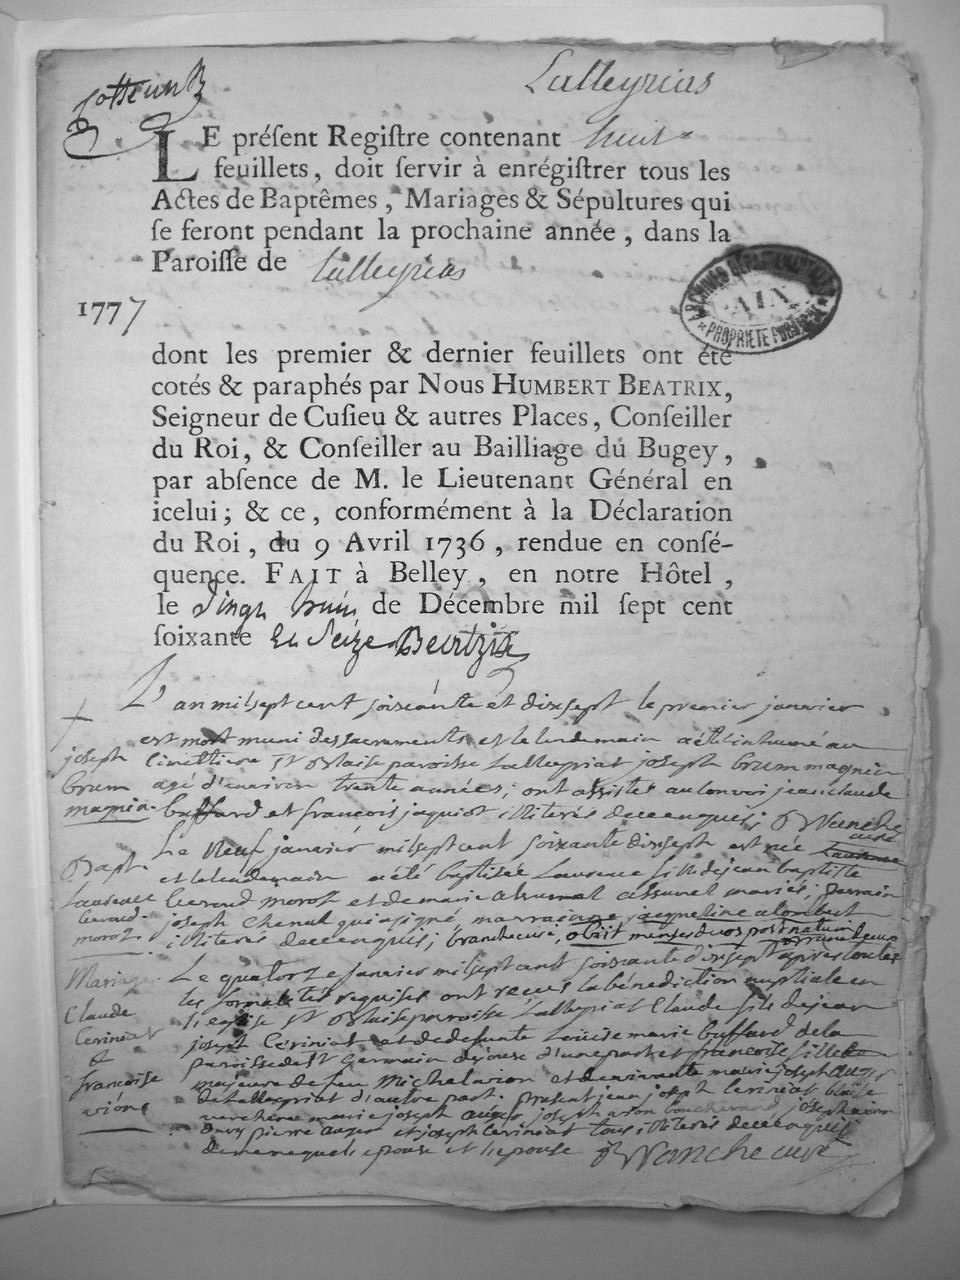 Lalleyrias
LE préſent Regiſtre contenant huit
feuillets, doit ſervir à enrégiſtrer tous les
Actes de Baptêmes, Mariages & Sépultures qui
ſe feront pendant la prochaine année, dans la
Paroiſſe de Lalleyrias
1777
ARCHIVES DÉPARTEMENTALES
AIN
PROPRIÉTÉ PUBLIQUE
dont les premier & dernier feuillets ont été
cotés & paraphés par Nous HUMBERT BEATRIX,
Seigneur de Cuſieu & autres Places, Conſeiller
du Roi, & Conſeiller au Bailliage du Bugey,
par abſence de M. le Lieutenant Général en
icelui; & ce, conformément à la Déclaration
du Roi, du 9 Avril 1736, rendue en conſé-
quence. FAIT à Belley, en notre Hôtel,
le vingt de Décembre mil ſept cent
ſoixante et Seize Beatrix
L'an mil sept cent soixante et dix sept le premier janvier
est mort muni des sacrements et le lendemain a été inhumé au
joseph
cimetiere St Blaise paroisse Lalleyriat joseph brum magnin
brum
agé d'environ trente années; ont assistés au convoi jean claude
magnin
buffard et françois jaquiot illiterés de ce enquis
curé
Bapt
Le Neuf janvier mil sept cent soixante dix sept est née Laurence
et le lendemain a été baptisée Laurence fille de jean baptiste
Laurence
Geroud moroz et de marie assumel mariés; parrain
Geroud
moroz
joseph chenal qui a signé, marraine jacqueline
illiterés de ce enquis; branche curé, obiit menses duos post natum
Mariage
Le quatorze janvier mil sept cent soixante dix sept après toutes
les formalités requises ont reçus la bénédiction nuptiale en
Claude
l'eglise St Blaise paroisse Lalleyriat Claude fils de jean
Ceriniat
joseph Ceriniat et de defunte Louise marie buffard de la
et
paroisse de St Germain de joux d'une part et francoise fille
françoise
majeure de feu Michel avion et de vivante marie joseph auger
avion
de Lalleyriat d'autre part. présent jean joseph ceriniat
marie joseph auger joseph avion joseph
pierre auger et joseph Ceriniat tous illiterés de ce enquis
de meme que l'epouse et l'epouse Branche curé